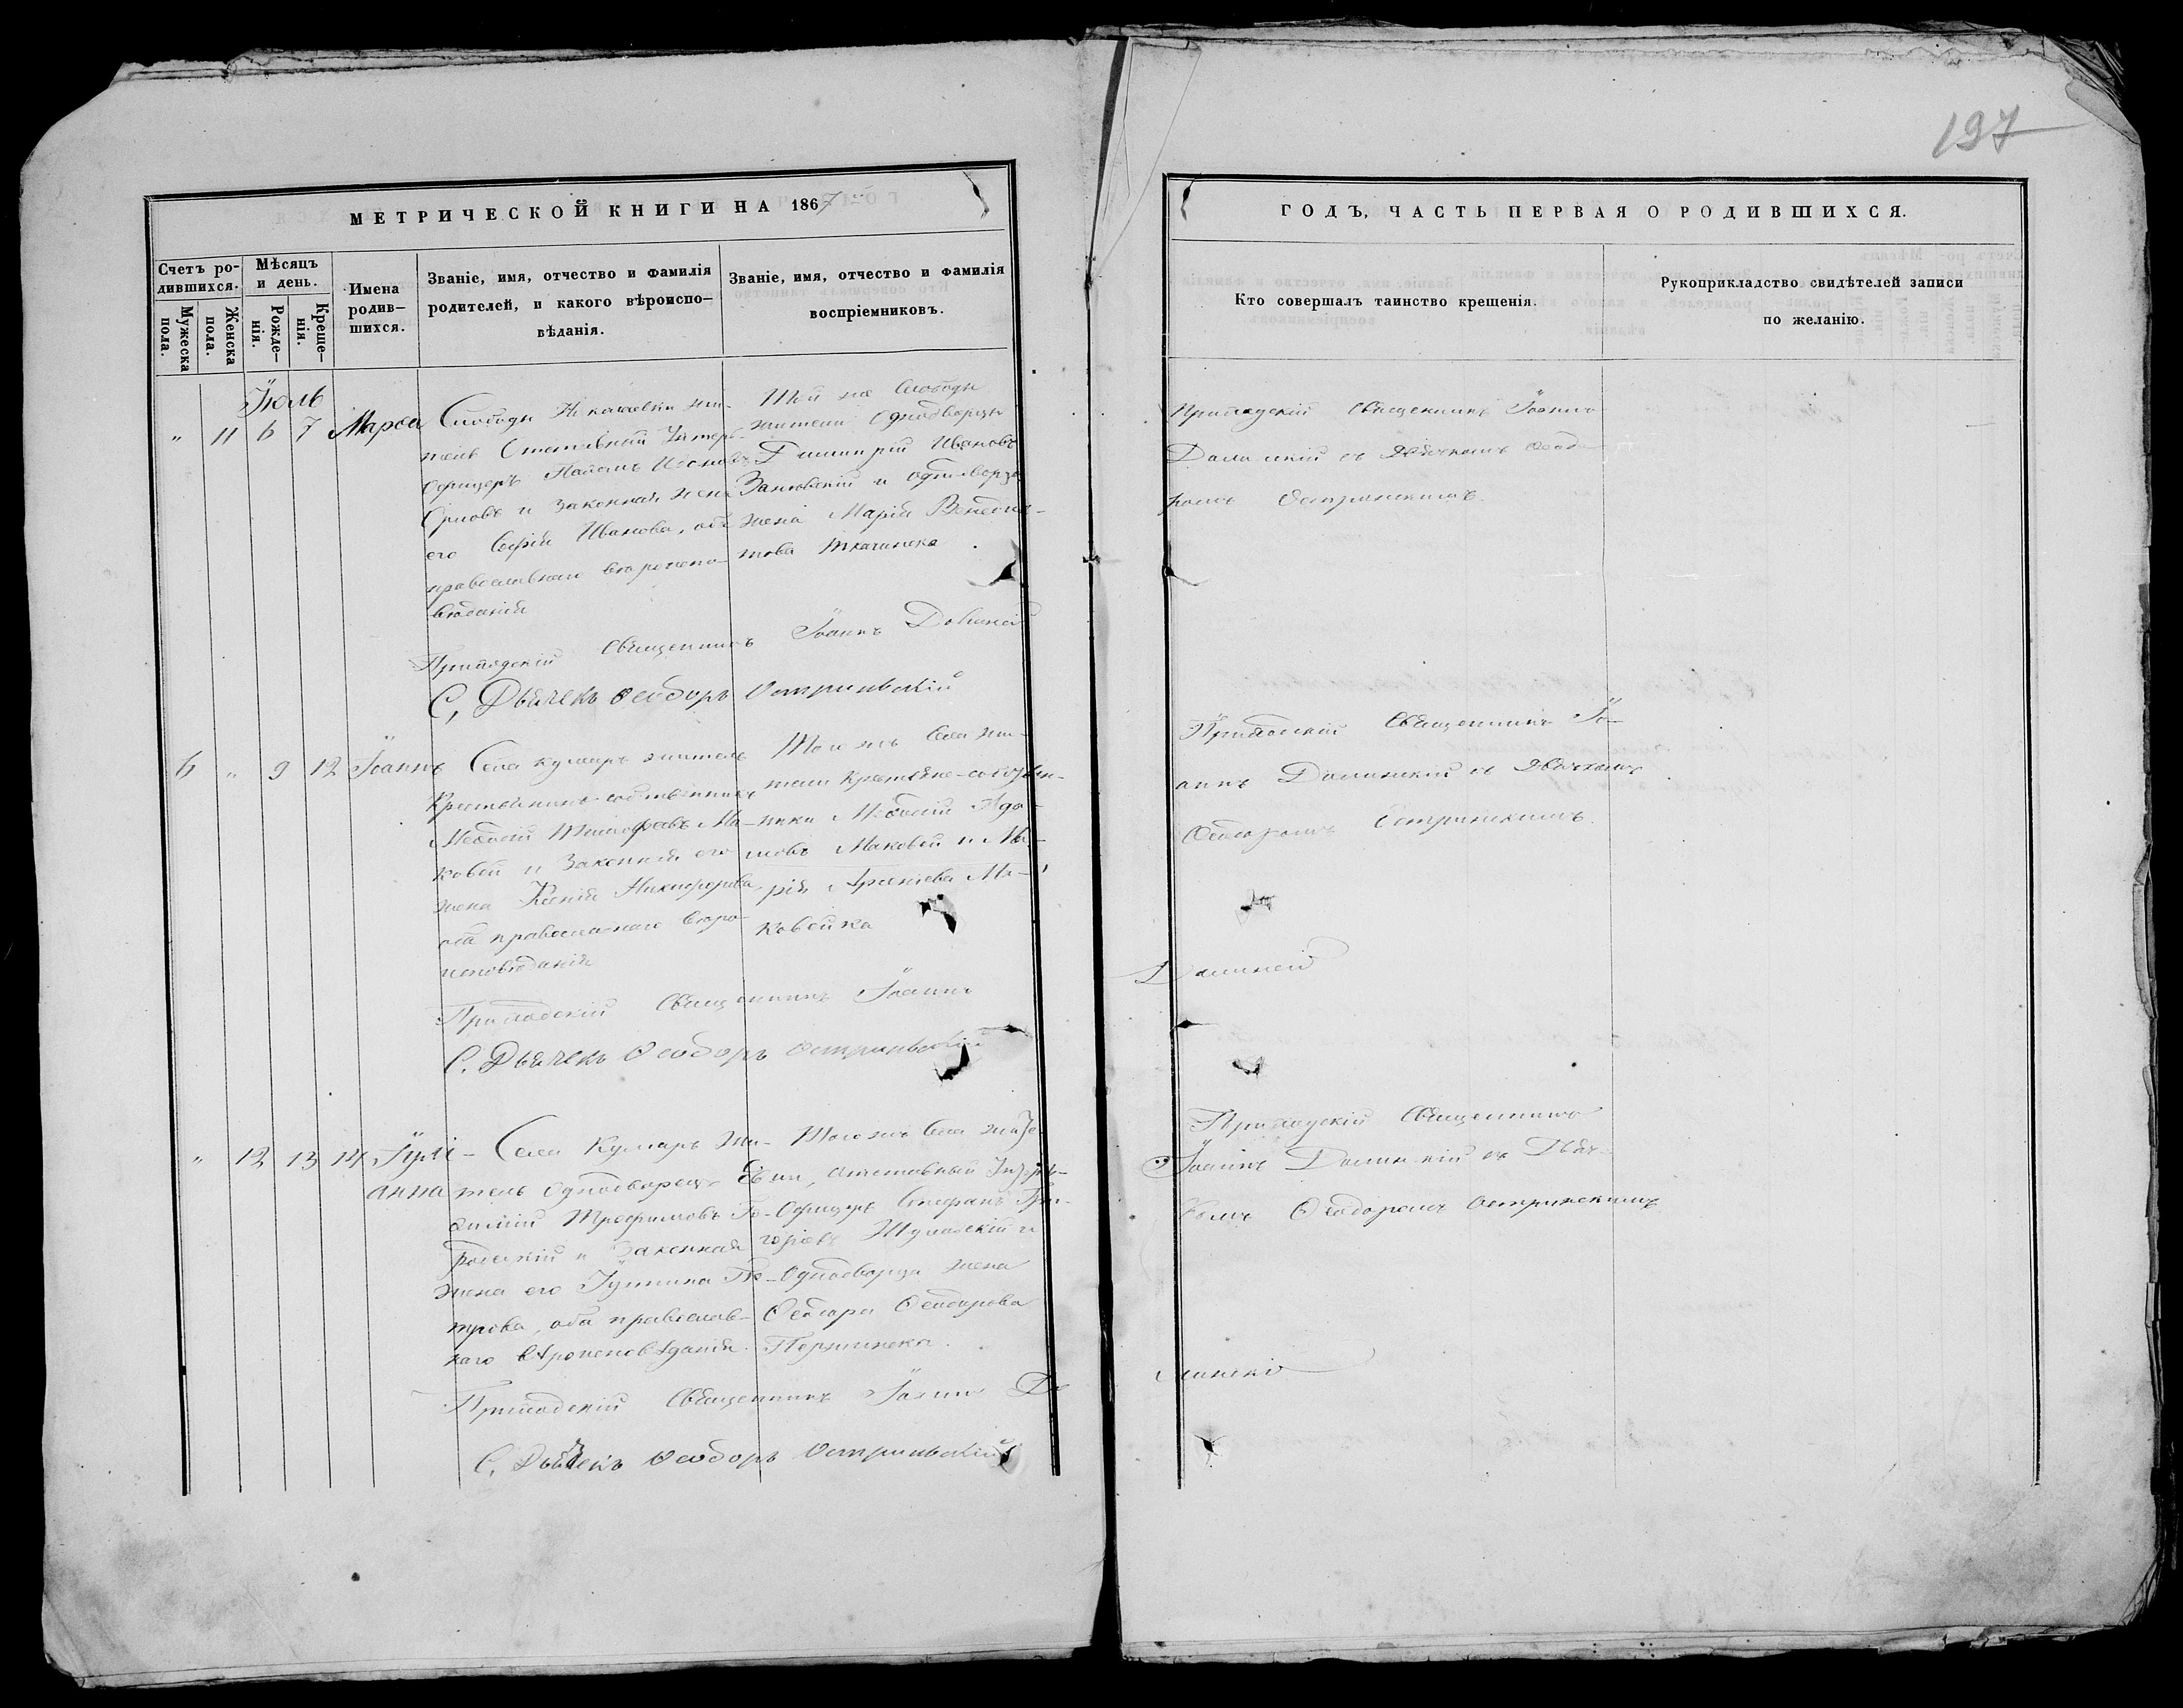 197
МЕТРИЧЕСКОЙ КНИГИ НА 1867
ГОДЪ, ЧАСТЬ ПЕРВАЯ О РОДИВШИХСЯ.
Счетъ ро-
дившихся.
Мужеска
пола.
Женска
пола.
Мѣсяцъ
и день.
Рожде-
нія.
Креще-
нія.
Имена
родив-
шихся.
Званіе, имя, отчество и фамилія
родителей, и какого вѣроиспо-
вѣданія.
Званіе, имя, отчество и фамилія
воспріемниковъ.
Кто совершалъ таинство крещенія.
Рукоприкладство свидѣтелей записи
по желанію.
Іюль
" 11 6 7 Марѳа
Слободы жи-
тель Отставный Унтеръ
Офицеръ
Орловъ и законная жена
его Софія Иванова, оба
православнаго вѣроиспо-
вѣданія
Той же Слободы
жители Однодворцы
Димитрій Ивановъ
и однодворца
жена Марія Венедик-
това
Приходскій Священникъ Іоаннъ
Долинскій съ Дьячкомъ Ѳеодо-
ромъ Остринскимъ.
Приходскій Священникъ Іоаннъ Долинскій
С, Дьячекъ Ѳеодоръ Остриньскій
6 " 9 12 Іоаннъ
Села Кулмаръ житель
Крестьянинъ-собственникъ
Меѳодій Тимофеевъ Ма-
ковей и Законная его
жена Ксенія Никифорова
оба православнаго вѣро-
исповѣданія
Того жъ Села жи-
тели Крестьяне-собствен-
ники Меѳодій Ада-
мовъ Маковей и Ма-
рія Арсеніева Ма-
ковейка
Приходскій Священникъ Іо-
аннъ Долинскій съ Дьячкомъ
Ѳеодоромъ Остринскимъ.
Приходскій Священникъ Іоаннъ Долинскій
С. Дьячекъ Ѳеодоръ Остриньскій
" 12 13 14 Іулі-
анна
Села Кулмаръ Жи-
тель Однодворецъ Ев-
Трофимовъ Го-
родецкій и Законная
жена его Іустина Пе-
трова, оба православ-
наго вѣроисповѣданія.
Того жъ Села жите-
ли, отставный Унтеръ-
Офицеръ Стефанъ Гри-
горьевъ и
Однодворца жена
Ѳеодора Ѳеодорова
Приходскій Священникъ
Іоаннъ Долинскій съ Дьяч-
комъ Ѳеодоромъ Остринскимъ
Приходскій Священникъ Іоаннъ Долинскій
С, Дьячекъ Ѳеодоръ Остриньскій